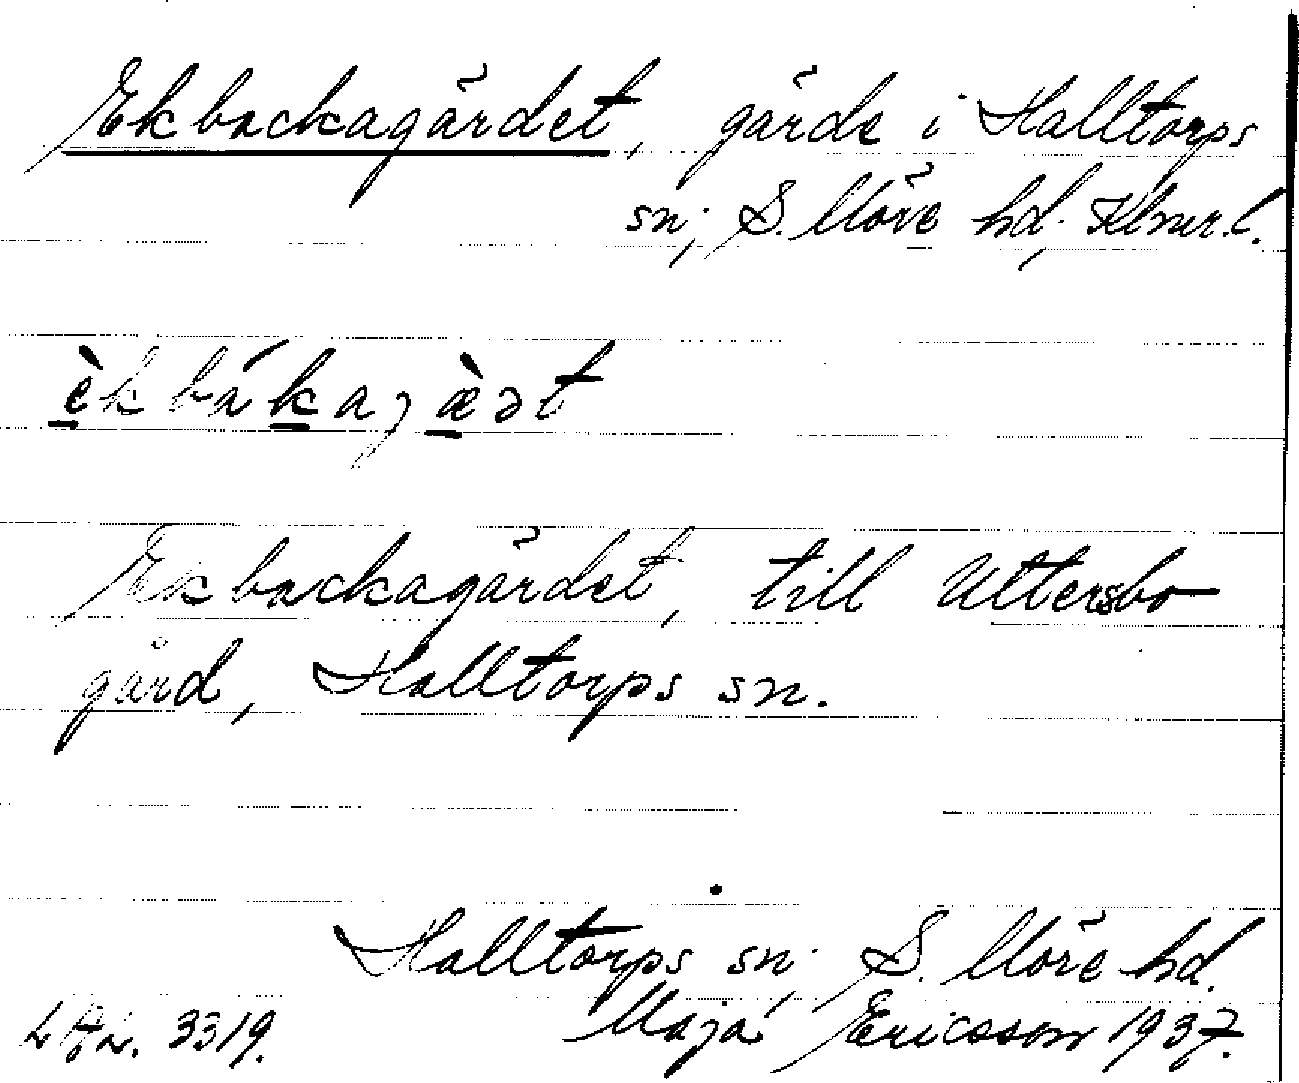 Ekbackagärdet, gärde i Halltorps
sn; S. Möre hd; Klmr. l.
èkbákagæ̀ət
Ekbackagärdet, till Uttersbo
gård, Halltorps sn.
Halltorps sn; S. Möre hd.
3319. Maja Ericsson 1937.